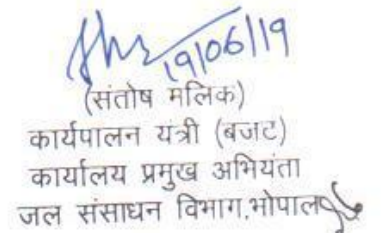 19/06/19
(संतोष मलिक)
कार्यपालन यंत्री (बजट)
कार्यालय प्रमुख अभियंता
जल संसाधन विभाग,भोपाल